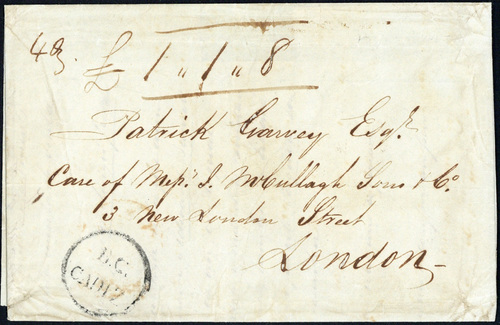 4oz.
£ 1 " 1 " 8
Patrick Garvey Esqr.
Care of Messrs. J. McCullagh Sons & Co.
3 New London Street
London
B.C.
CADIZ